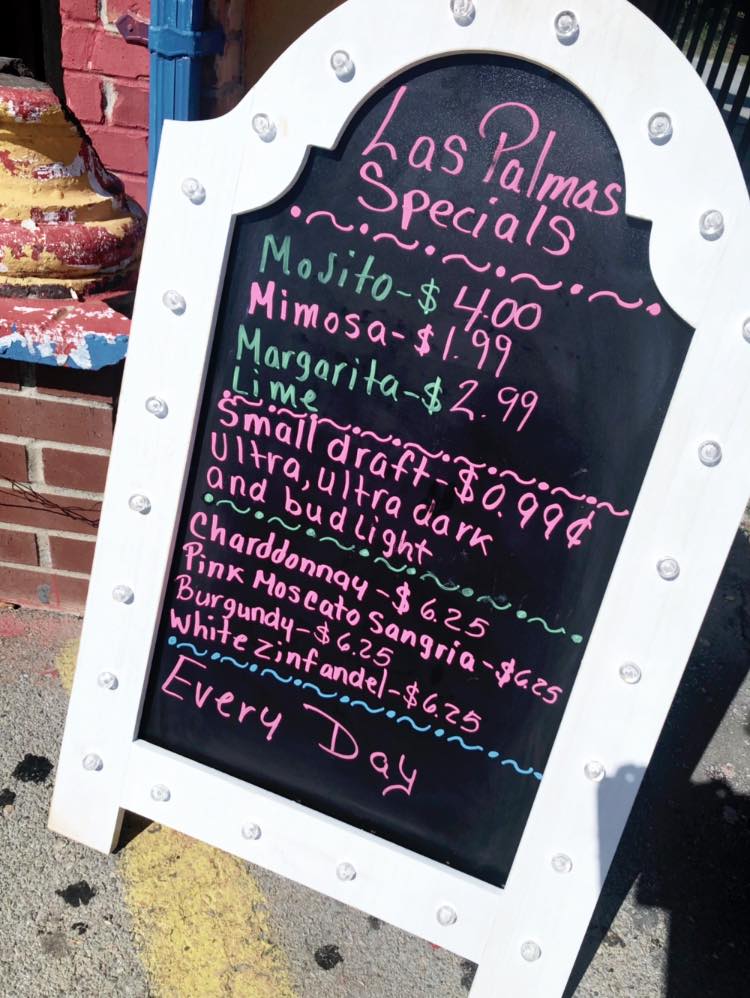 Las Palmas
Specials
Mojito-$ 4.00
Mimosa-$1.99
Margarita-$2.99
Lime
Small draft-$0.99¢
Ultra, Ultra dark
and bud light
Charddonnay-$6.25
Pink Moscato Sangria-$6.25
Burgundy-$6.25
White zinfandel-$6.25
Every Day